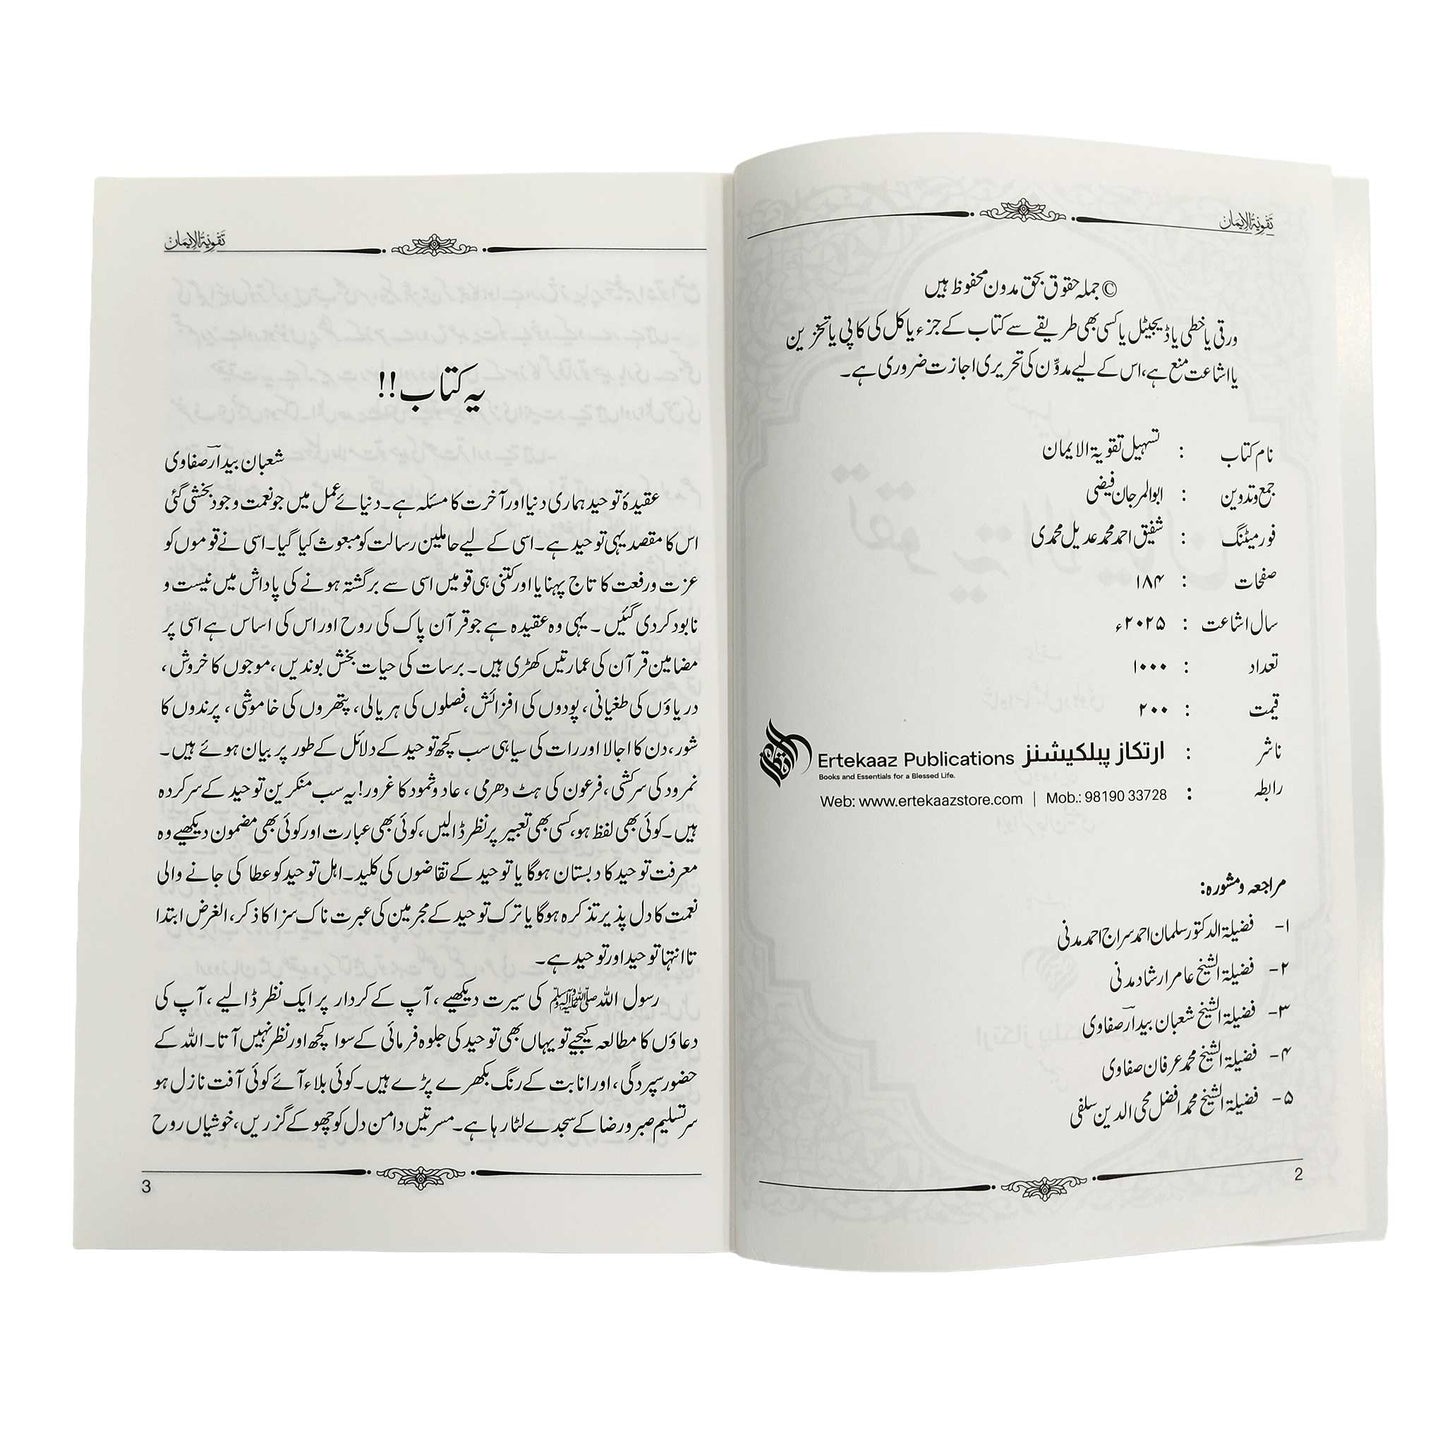 تقویۃ الایمان
© جملہ حقوق بحق مدون محفوظ ہیں
ورقی یا خطی یا ڈیجیٹل یا کسی بھی طریقے سے کتاب کے جزء یا کل کی کاپی یا تخزین
یا اشاعت منع ہے، اس کے لیے مدوِّن کی تحریری اجازت ضروری ہے۔
نام کتاب : تسہیل تقویۃ الایمان
جمع وتدوین : ابوالمرجان فیضی
فورمیٹنگ : شفیق احمد محمد عدیل محمدی
صفحات : ۱۸۴
سال اشاعت : ۲۰۲۵ء
تعداد : ۱۰۰۰
قیمت : ۲۰۰
ناشر : ارتکاز پبلکیشنز Ertekaaz Publications
Books and Essentials for a Blessed Life.
رابطہ : Web: www.ertekaazstore.com | Mob.: 98190 33728
مراجعہ ومشورہ:
۱- فضیلۃ الدکتور سلمان احمد سراج احمد مدنی
۲- فضیلۃ الشیخ عامر ارشاد مدنی
۳- فضیلۃ الشیخ شعبان بیدارؔ صفاوی
۴- فضیلۃ الشیخ محمد عرفان صفاوی
۵- فضیلۃ الشیخ محمد افضل محی الدین سلفی
2
تقویۃ الایمان
یہ کتاب!!
شعبان بیدارؔ صفاوی
عقیدۂ توحید ہماری دنیا اور آخرت کا مسئلہ ہے۔ دنیائے عمل میں جو نعمت وجود بخشی گئی
اس کا مقصد یہی توحید ہے۔ اسی کے لیے حاملین رسالت کو مبعوث کیا گیا۔ اسی نے قوموں کو
عزت ورفعت کا تاج پہنایا اور کتنی ہی قومیں اسی سے برگشتہ ہونے کی پاداش میں نیست و
نابود کردی گئیں۔ یہی وہ عقیدہ ہے جو قرآن پاک کی روح اور اس کی اساس ہے اسی پر
مضامین قرآن کی عمارتیں کھڑی ہیں۔ برسات کی حیات بخش بوندیں، موجوں کا خروش،
دریاؤں کی طغیانی، پودوں کی افزائش، فصلوں کی ہریالی، پتھروں کی خاموشی، پرندوں کا
شور، دن کا اجالا اور رات کی سیاہی سب کچھ توحید کے دلائل کے طور پر بیان ہوئے ہیں۔
نمرود کی سرکشی، فرعون کی ہٹ دھرمی، عاد وثمود کا غرور! یہ سب منکرین توحید کے سرکردہ
ہیں۔ کوئی بھی لفظ ہو، کسی بھی تعبیر پر نظر ڈالیں، کوئی بھی عبارت اور کوئی بھی مضمون دیکھیے وہ
معرفت توحید کا دبستان ہوگا یا توحید کے تقاضوں کی کلید۔ اہل توحید کو عطا کی جانے والی
نعمت کا دل پذیر تذکرہ ہوگا یا ترک توحید کے مجرمین کی عبرت ناک سزا کا ذکر، الغرض ابتدا
تا انتہا توحید اور توحید ہے۔
رسول اللہ ﷺ کی سیرت دیکھیے، آپ کے کردار پر ایک نظر ڈالیے، آپ کی
دعاؤں کا مطالعہ کیجیے تو یہاں بھی توحید کی جلوہ فرمائی کے سوا کچھ اور نظر نہیں آتا۔ اللہ کے
حضور سپردگی، اور انابت کے رنگ بکھرے پڑے ہیں۔ کوئی بلاء آئے کوئی آفت نازل ہو
سر تسلیم صبر ورضا کے سجدے لٹا رہا ہے۔ مسرتیں دامن دل کو چھو کے گزریں، خوشیاں روح
3